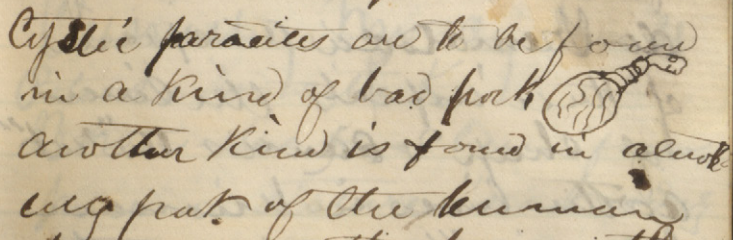 Cystic parasites are to be found
in a kind of bad pork
another kind is found in almost
any part of the human